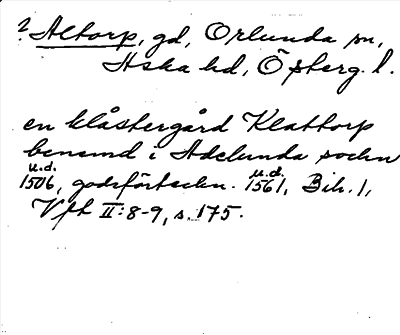 ? Altorp, gd, Orlunda sn,
Aska hd, Östergl.
en klåstergård Klattorp
benemd i Adelunda sochn
u.d. u.d.
1506, godsförteckn. 1561, Bih. 1,
Vfk II:8-9, s. 175.